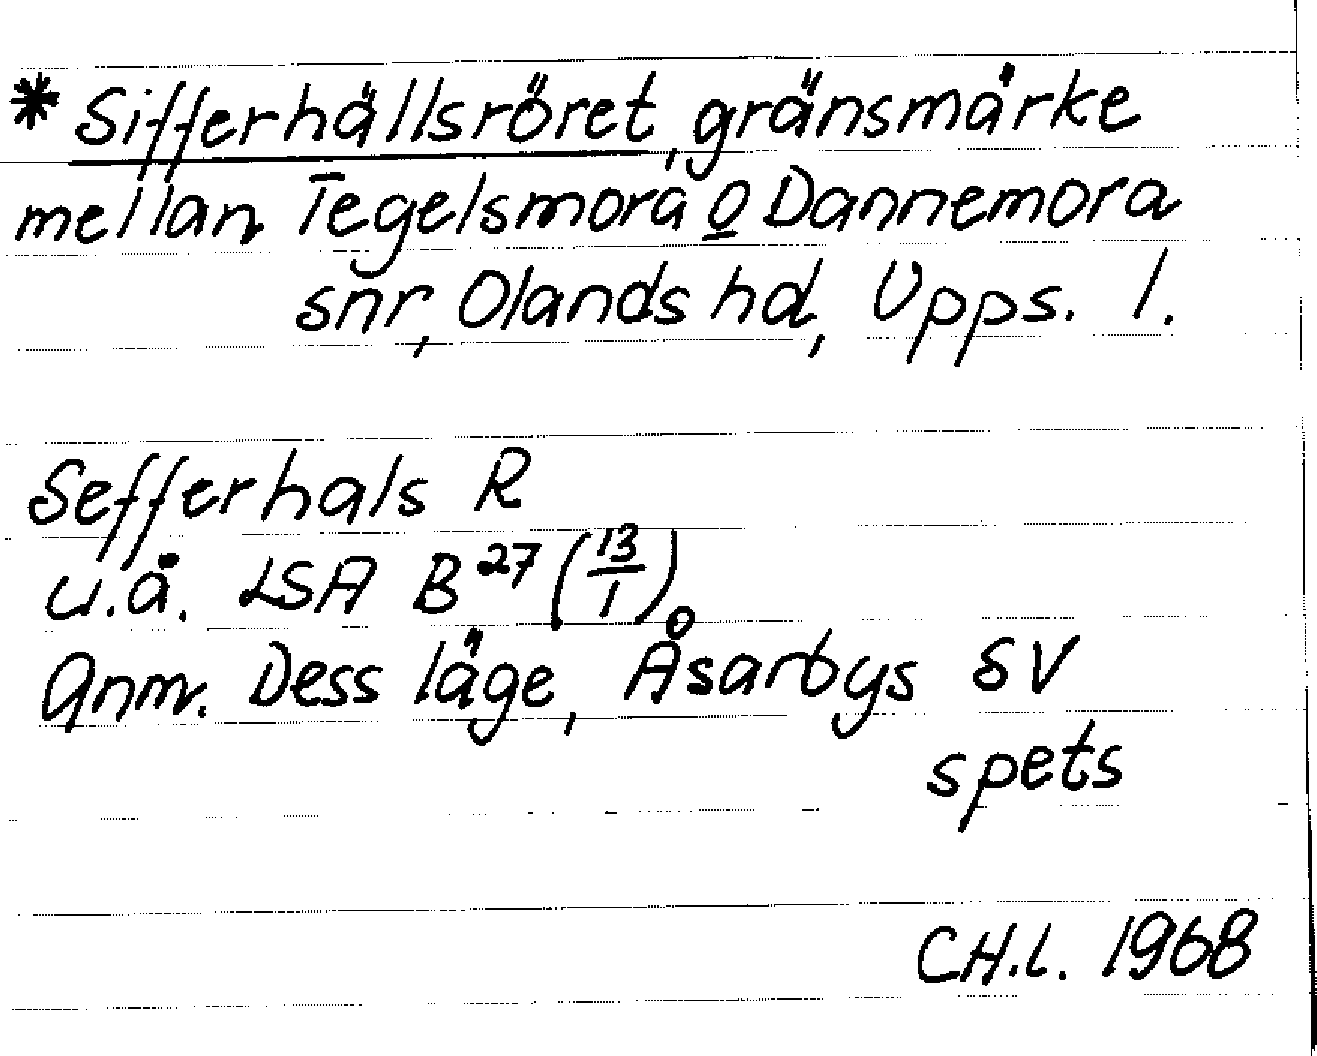 * Sifferhällsröret, gränsmärke
mellan Tegelsmora o Dannemora
snr, Olands hd, Upps. l.
Sefferhals R
u.å. LSA B²⁷ (13/1)
Anm. Dess läge, Åsarbys SV
spets
C.H.L. 1968